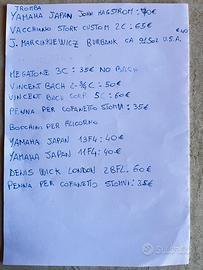 TROMBA
YAMAHA JAPAN JOHN HAGSTROM: 70€
VACCHIANO STORK CUSTOM 2C: 65€
J. MARCINKIEWICZ BURBANK CA 91502 U.S.A. €40
MEGATONE 3C: 35€ NO BACH
VINCENT BACH 2-3/4C: 50€
VINCENT BACH CORP 5C: 60€
PENNA PER COFANETTO STOMVI: 35€
BOCCHINI PER FLICORNO
YAMAHA JAPAN 13F4: 40€
YAMAHA JAPAN 11F4: 40€
DENIS WICK LONDON 2BFL: 60€
PENNA PER COFANETTO STOMVI: 35€
subito